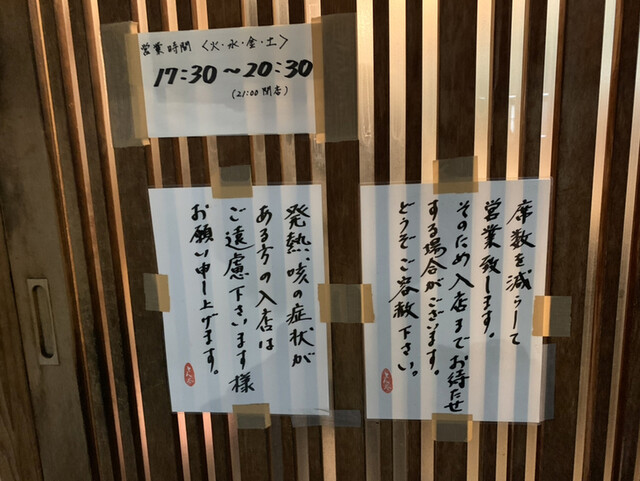 営業時間 〈火・水・金・土〉
17:30〜20:30
(21:00 閉店)
席数を減らして
営業致します。
そのため入店までお待たせ
する場合がございます。
どうぞご容赦下さい。
発熱、咳の症状が
ある方の入店は
ご遠慮下さいます様
お願い申し上げます。